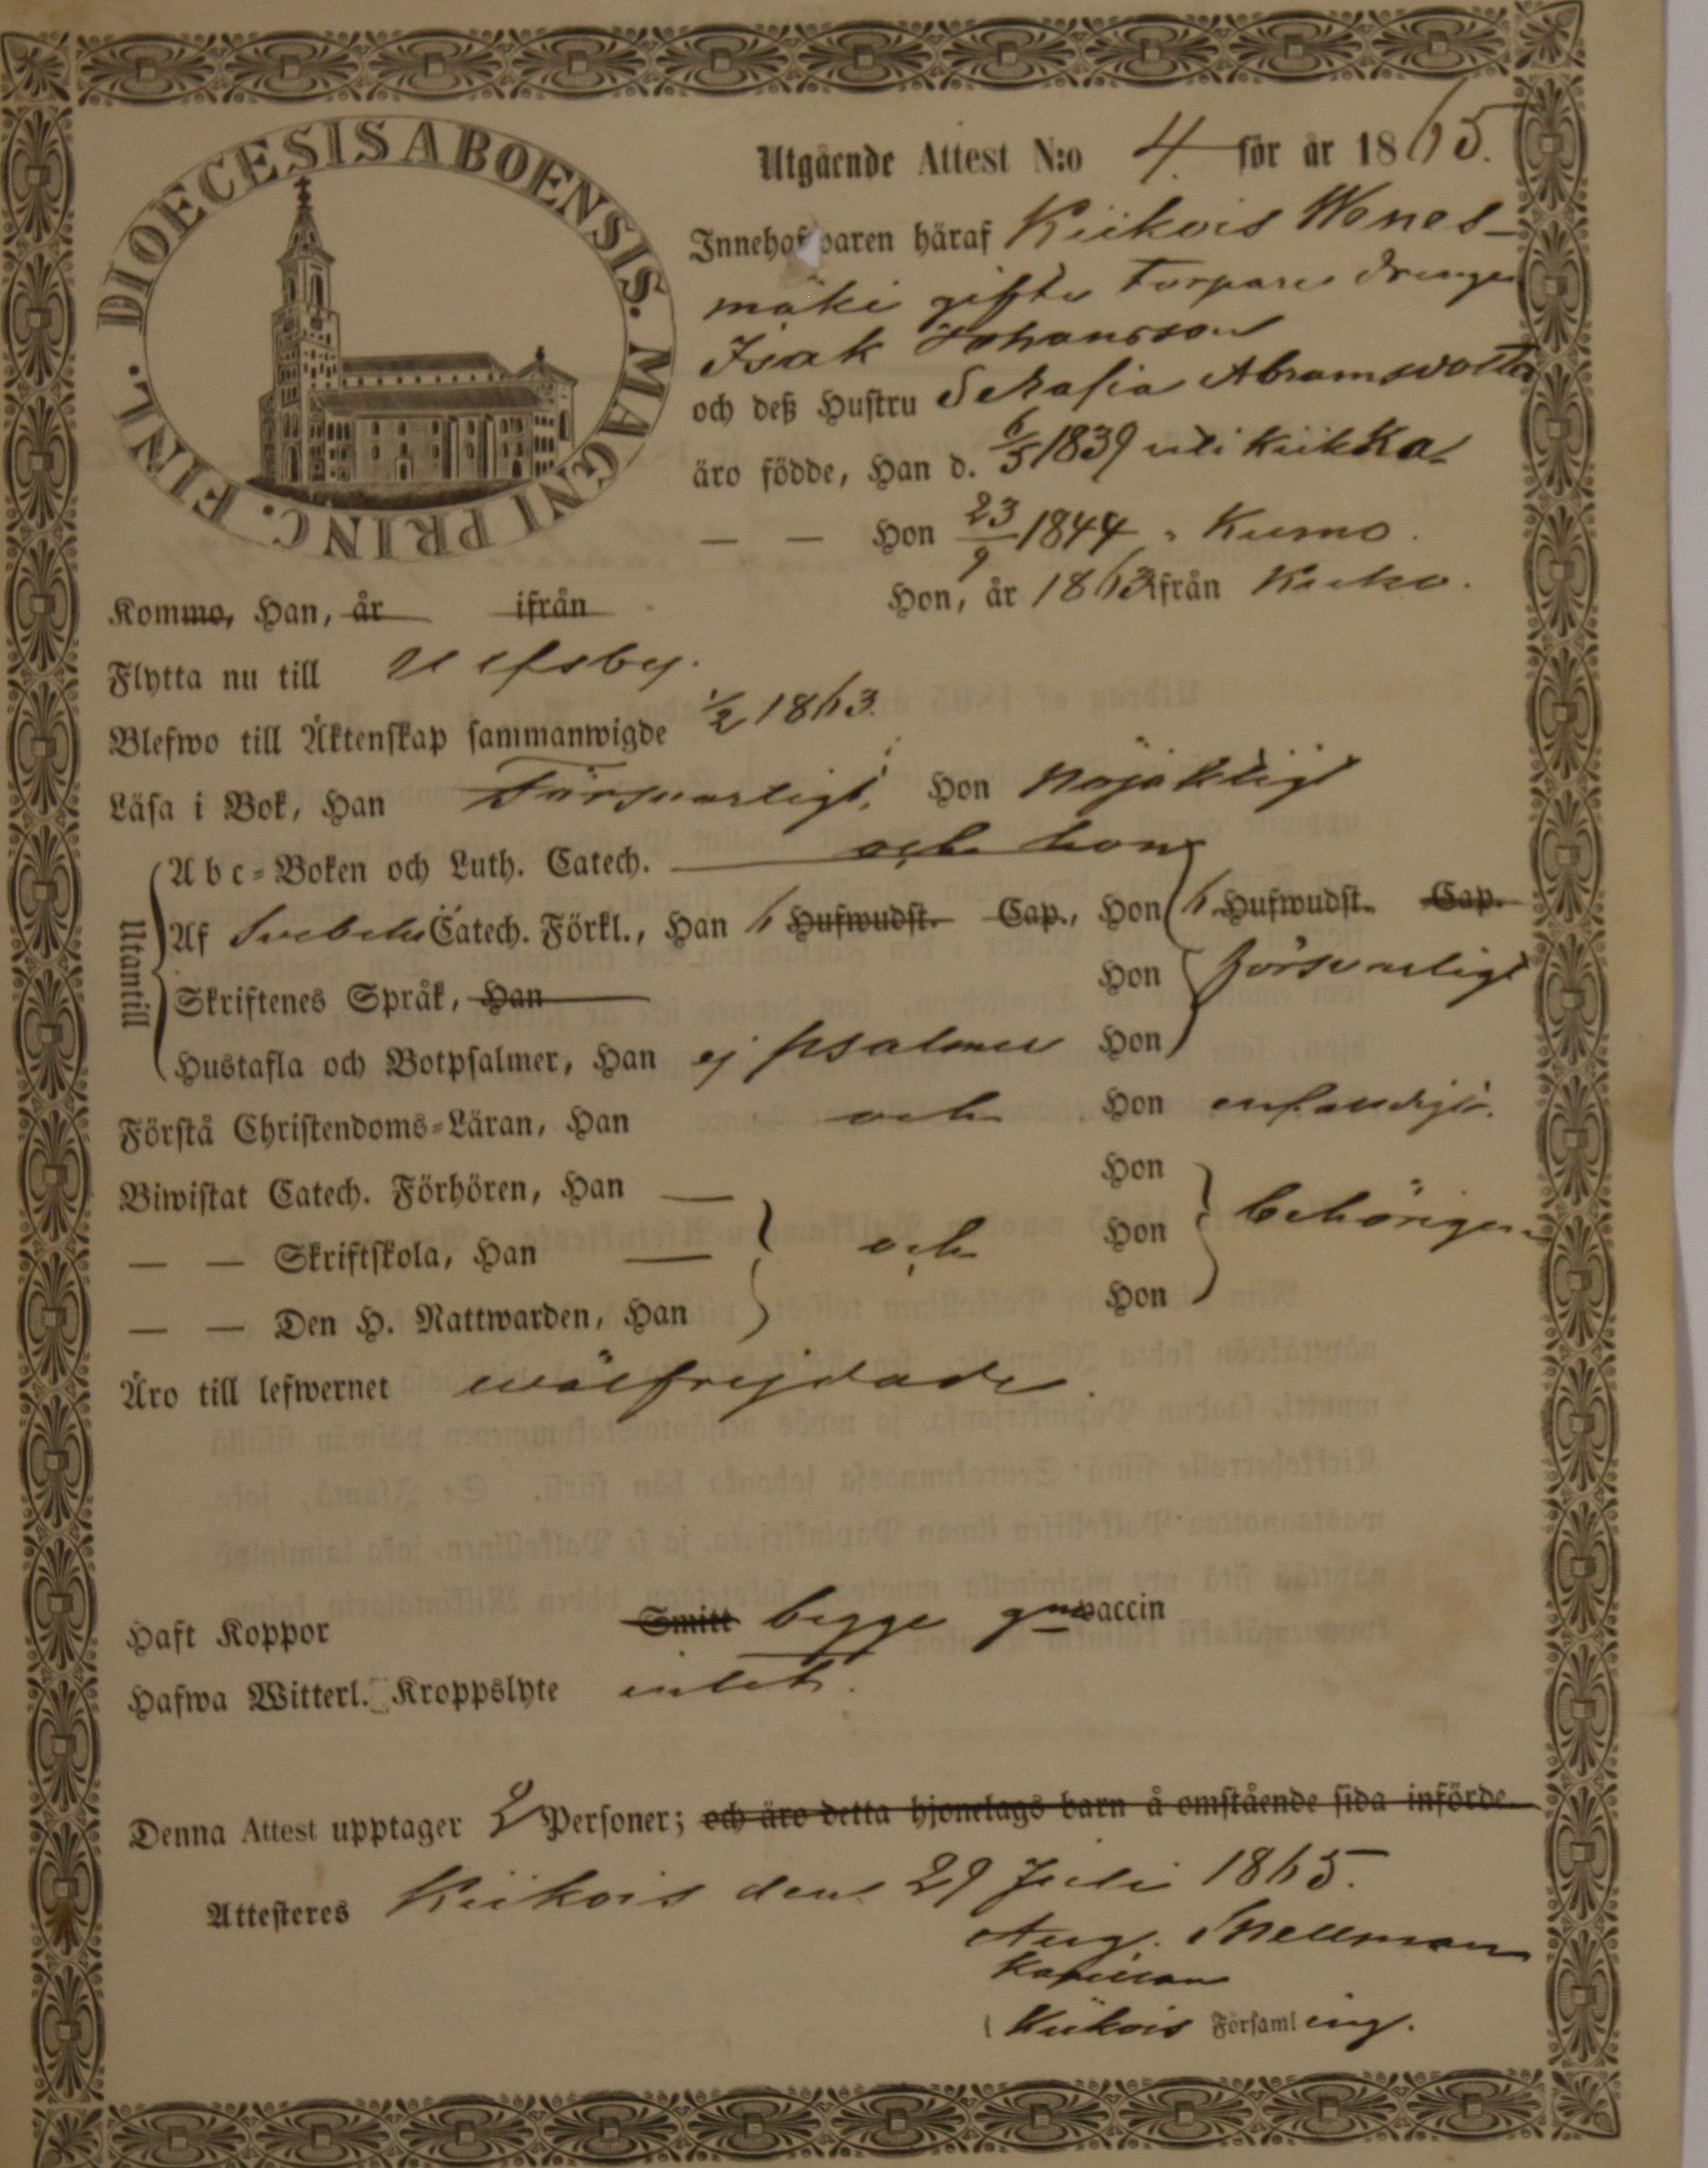 DIOECESIS ABOENSIS. MAGNI PRINC. FINL.
Utgående Attest N:o 4. för år 1865.
Innehafwaren häraf Kiikois Wanes-
mäki gifte Torpare drengen
Isak Johansson
och deß Hustru Serafia Abramsdotter
äro födde, Han d. 6/5 1839 uti Kiikka
— — Hon 23/9 1844 " Kumo.
Kommo, Han, år ifrån Hon, år 1863 ifrån
Flytta nu till Ulfsby.
Blefwo till Äktenskap sammanwigde 1/2 1863.
Läsa i Bok, Han Försvarligt, Hon Nöjaktigt
Utantill
Abc-Boken och Luth. Catech. och hon
Af Svebelii Catech. Förkl., Han 6 Hufwudst. Cap., Hon 6 Hufwudst. Cap.
Skriftenes Språk, Han Hon försvarligt
Hustafla och Botpsalmer, Han ej psalmer Hon
Förstå Christendoms-Läran, Han och Hon enfaldigt.
Biwistat Catech. Förhören, Han — Hon
— — Skriftskola, Han — och Hon behörigen
— — Den H. Nattwarden, Han Hon
Äro till lefwernet wälfrejdade.
Haft Koppor Smitt begge gm vaccin
Hafwa Witterl. Kroppslyte intet.
Denna Attest upptager 2 Personer; och äro detta hjonelags barn å omstående sida införde.
Attesteres Kiikois den 29 Juli 1865.
Aug. Snellman
Kapellan
i Kiikois Församling.